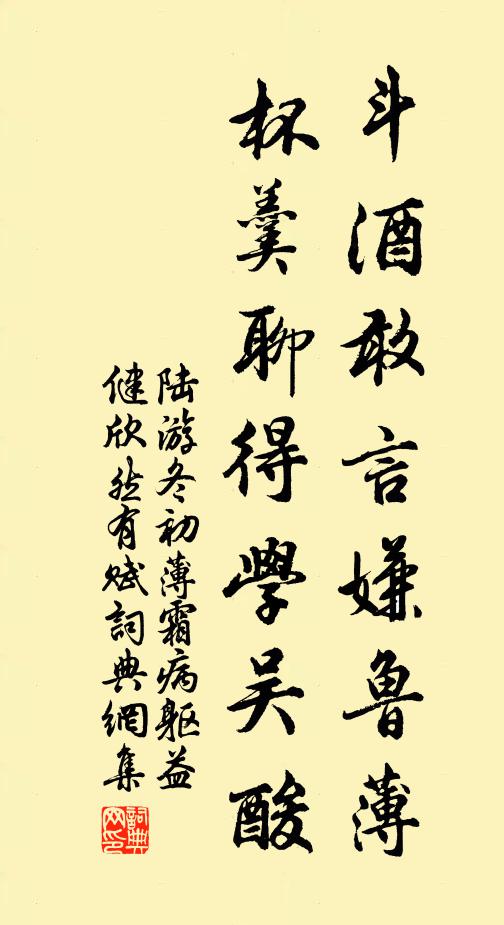 斗酒敢言嫌鲁薄
杯羹聊得學吴酸
陆游冬初薄霜病軀益
健欣然有赋詞典網集
詞典
网印